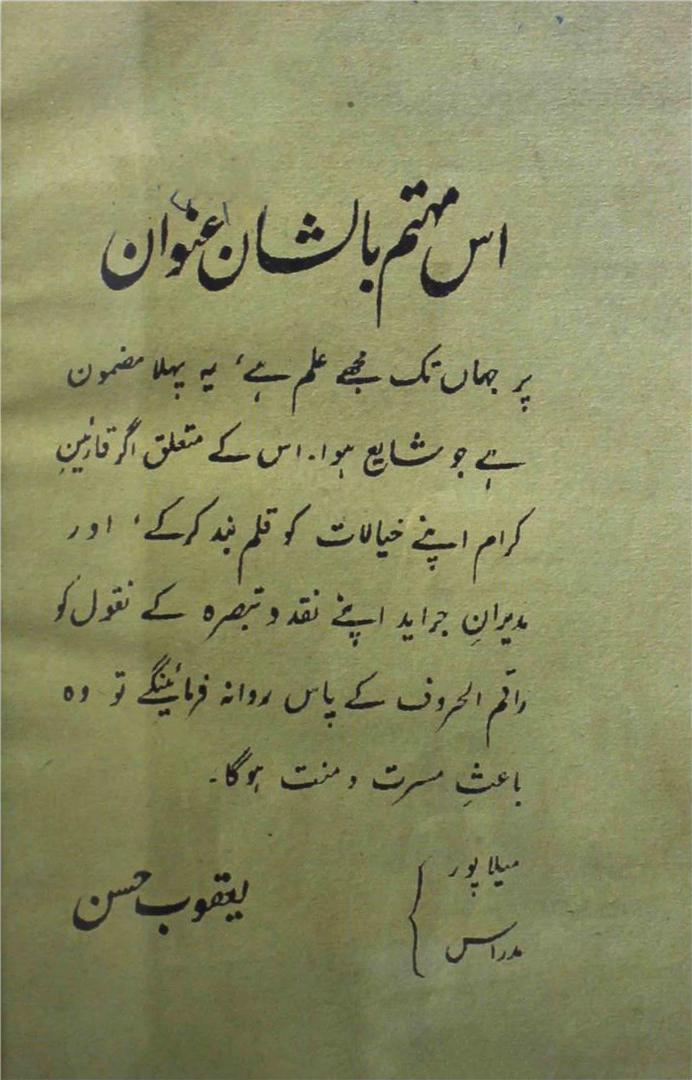 اس مہتم بالشان عنوان
پر جہاں تک مجھے علم ہے، یہ پہلا مضمون
ہے جو شایع ہوا۔ اس کے متعلق اگر قارئینِ
کرام اپنے خیالات کو قلم بند کرکے، اور
مدیرانِ جراید اپنے نقد و تبصرہ کے نقول کو
راقم الحروف کے پاس روانہ فرمائینگے تو وہ
باعثِ مسرت و منت ہوگا۔
میلاپور
مدراس
یعقوب حسن